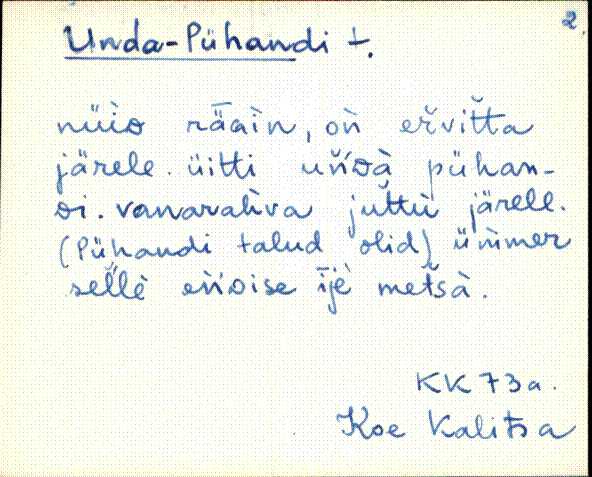 2.
Unda-Pühandi t.
nüìᴅ rāaìn, oǹ eřvitta
järele. üitti uňᴅà pühan-
ᴅi. vanarahva juttù järele.
(Pühandi talud olid) ümmer
sellè enᴅise ījè metsà.
KK 73a.
Koe Kalitsa